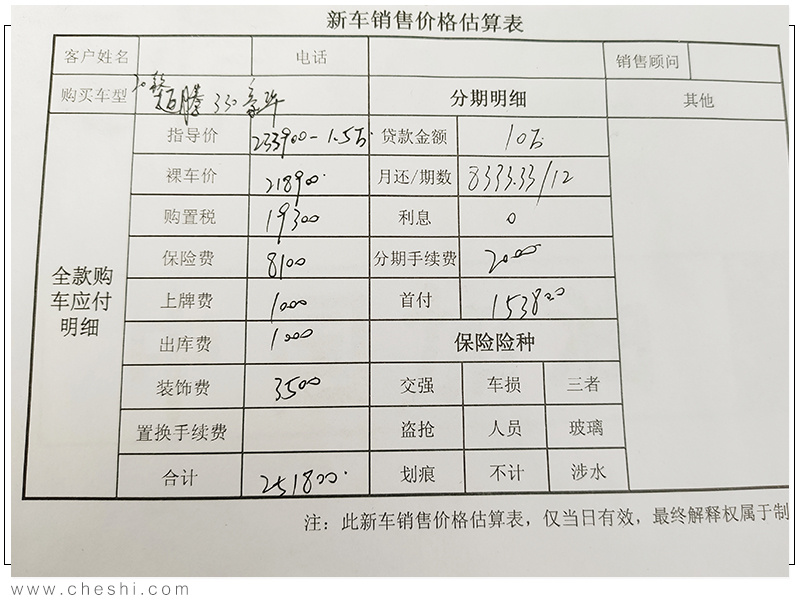 新车销售价格估算表
客户姓名 电话 销售顾问
购买车型 30 腾 330 豪华 分期明细 其他
全款购车应付明细
指导价 233900-1.5万 贷款金额 10万
裸车价 218900 月还/期数 8333.33/12
购置税 19300 利息 0
保险费 8100 分期手续费 2000
上牌费 1000 首付 153800
出库费 1000 保险险种
装饰费 3500 交强 车损 三者
置换手续费 盗抢 人员 玻璃
合计 251800 划痕 不计 涉水
注：此新车销售价格估算表，仅当日有效，最终解释权属于制
www.cheshi.com